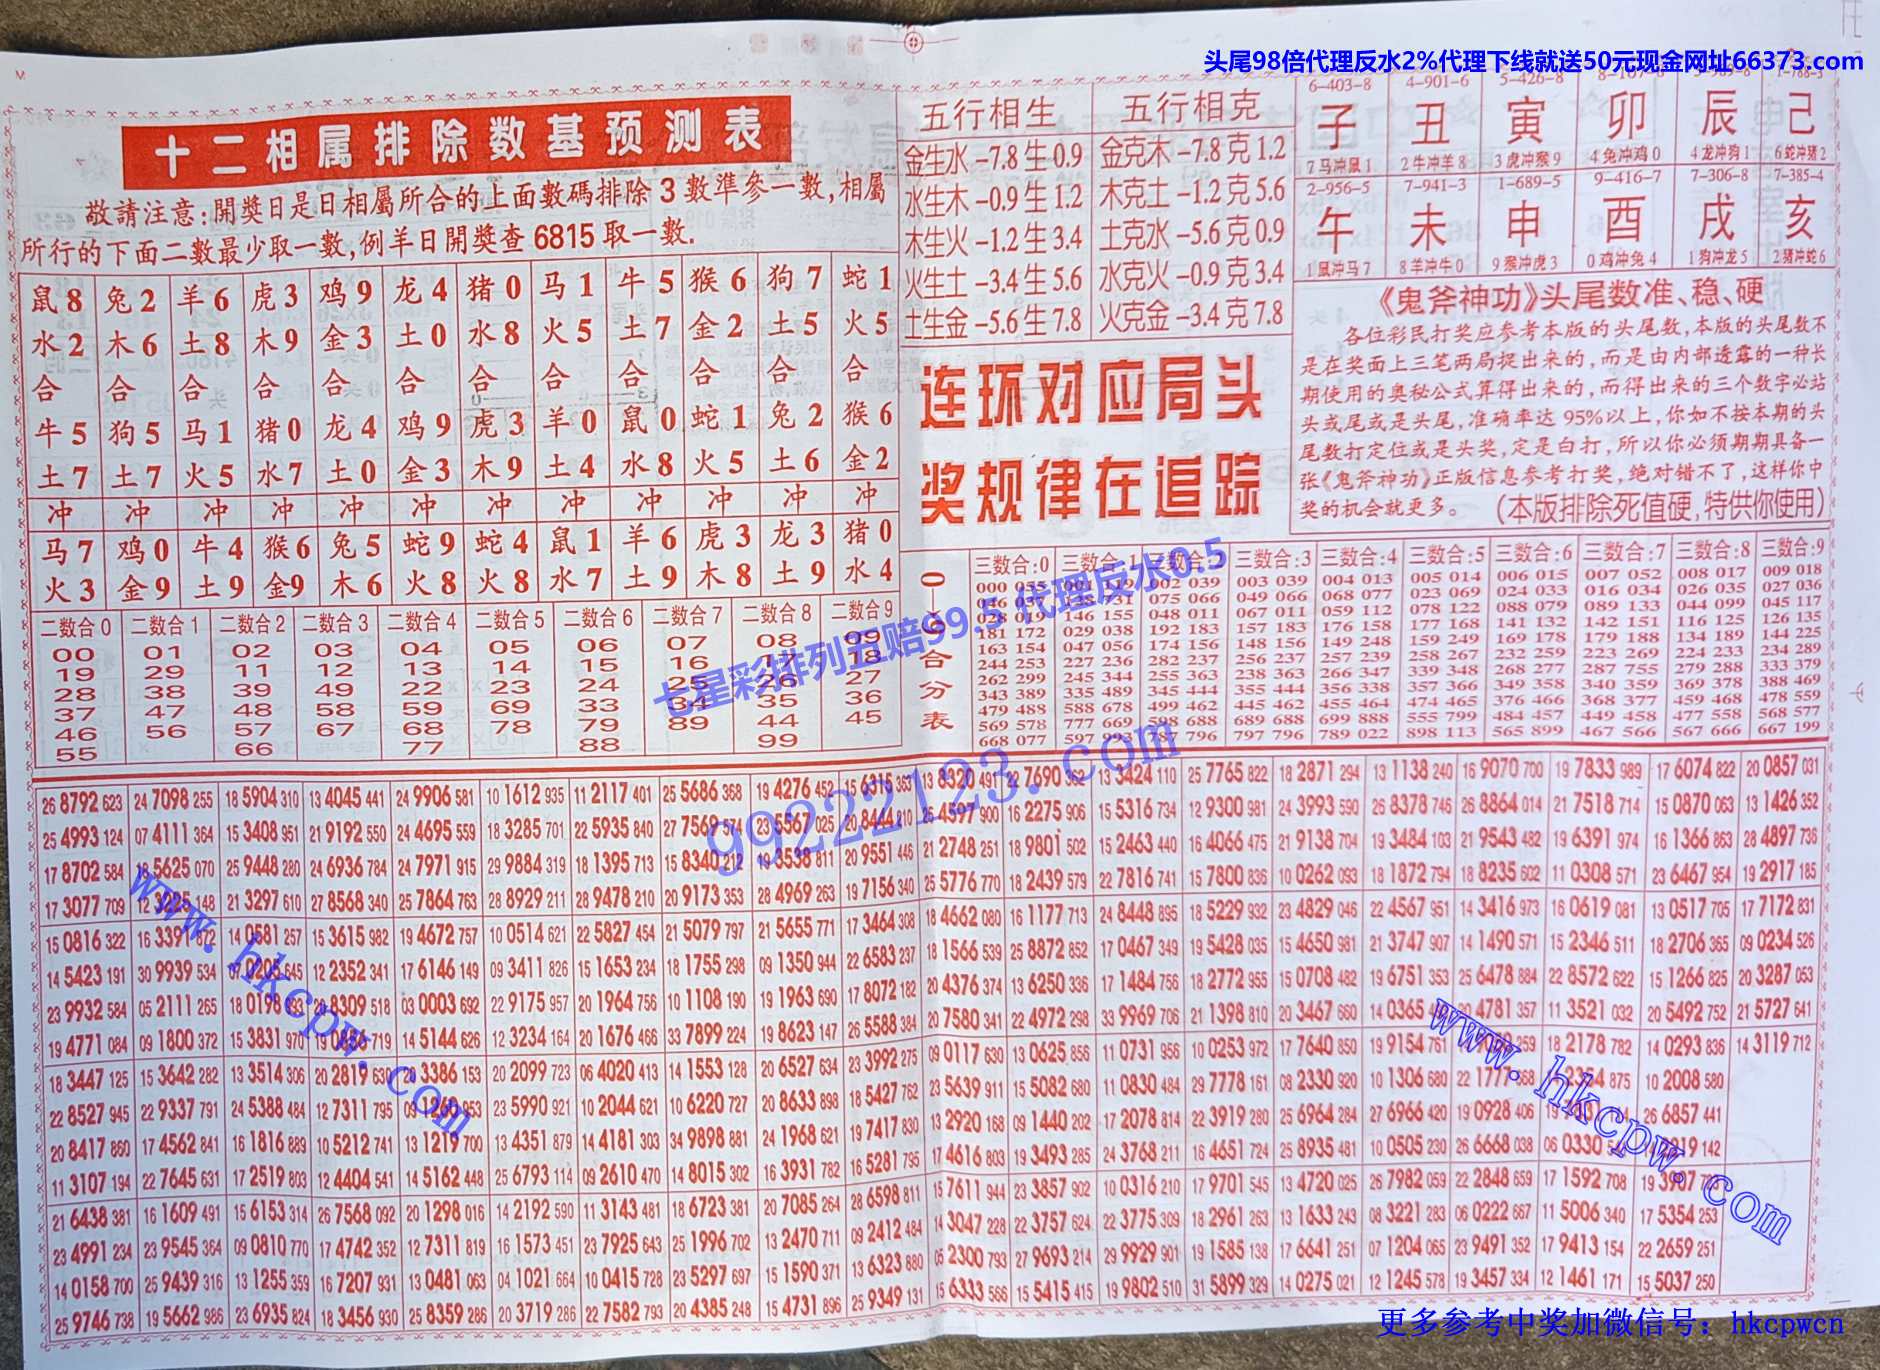 头尾98倍代理反水2%代理下线就送50元现金网址66373.com
十二相属排除数基预测表
敬請注意:開獎日是日相屬所合的上面數碼排除3數準參一數,相屬
所行的下面二數最少取一數,例羊日開獎查6815取一數.
鼠8 兔2 羊6 虎3 鸡9 龙4 猪0 马1 牛5 猴6 狗7 蛇1
水2 木6 土8 木9 金3 土0 水8 火5 土7 金2 土5 火5
合 合 合 合 合 合 合 合 合 合 合 合
牛5 狗5 马1 猪0 龙4 鸡9 虎3 羊0 鼠0 蛇1 兔2 猴6
土7 土7 火5 水7 土0 金3 木9 土4 水8 火5 土6 金2
冲 冲 冲 冲 冲 冲 冲 冲 冲 冲 冲 冲
马7 鸡0 牛4 猴6 兔5 蛇9 蛇4 鼠1 羊6 虎3 龙3 猪0
火3 金9 土9 金9 木6 火8 火8 水7 土9 木8 土9 水4
二数合0 二数合1 二数合2 二数合3 二数合4 二数合5 二数合6 二数合7 二数合8 二数合9
00 01 02 03 04 05 06 07 08 09
19 29 11 12 13 14 15 16 17 18
28 38 39 49 22 23 24 25 26 27
37 47 48 58 59 69 33 34 35 36
46 56 57 67 68 78 79 89 44 45
55 66 77 88 99
五行相生 五行相克
金生水-7.8生0.9 金克木-7.8克1.2
水生木-0.9生1.2 木克土-1.2克5.6
木生火-1.2生3.4 土克水-5.6克0.9
火生土-3.4生5.6 水克火-0.9克3.4
土生金-5.6生7.8 火克金-3.4克7.8
连环对应局头
奖规律在追踪
6-403-8 4-901-6 5-426-8
子 丑 寅 卯 辰 己
7马冲鼠1 2牛冲羊8 3虎冲猴9 4兔冲鸡0 4龙冲狗1 6蛇冲猪2
2-956-5 7-941-3 1-689-5 9-416-7 7-306-8 7-385-4
午 未 申 酉 戌 亥
1鼠冲马7 8羊冲牛0 9猴冲虎3 0鸡冲兔4 1狗冲龙5 2猪冲蛇6
《鬼斧神功》头尾数准、稳、硬
各位彩民打奖应参考本版的头尾数,本版的头尾数不
是在奖面上三笔两局捉出来的,而是由内部透露的一种长
期使用的奥秘公式算得出来的,而得出来的三个数字必站
头或尾或是头尾,准确率达95%以上,你如不按本期的头
尾数打定位或是头奖,定是白打,所以你必须期期具备一
张《鬼斧神功》正版信息参考打奖,绝对错不了,这样你中
奖的机会就更多。(本版排除死值硬,特供你使用)
0—9合分表
三数合:0 三数合:1 三数合:2 三数合:3 三数合:4 三数合:5 三数合:6 三数合:7 三数合:8 三数合:9
000 055 001 119 002 039 003 039 004 013 005 014 006 015 007 052 008 017 009 018
075 066 049 066 068 077 023 069 024 033 016 034 026 035 027 036
028 019 146 155 048 011 067 011 059 112 078 122 088 079 089 133 044 099 045 117
181 172 029 038 192 183 157 183 176 158 177 168 141 132 142 151 116 125 126 135
163 154 047 056 174 156 148 156 149 248 159 249 169 178 179 188 134 189 144 225
244 253 227 236 282 237 256 237 257 239 258 267 232 259 223 269 224 233 234 289
262 299 245 344 255 363 238 363 266 347 339 348 268 277 287 755 279 288 333 379
343 389 335 489 345 444 355 444 356 338 357 366 349 358 340 359 369 378 388 469
479 488 588 678 499 462 445 462 455 464 474 465 376 466 368 377 459 468 478 559
569 578 777 669 598 688 689 688 699 888 555 799 484 457 449 458 477 558 568 577
668 077 597 093 787 796 797 796 789 022 898 113 565 899 467 566 667 566 667 199
26 8792 623 24 7098 255 18 5904 310 13 4045 441 24 9906 581 10 1612 935 11 2117 401 25 5686 368 19 4276 452 15 6315 353 13 8320 491 22 7690 362 13 3424 110 25 7765 822 18 2871 294 13 1138 240 16 9070 700 19 7833 989 17 6074 822 20 0857 031
25 4993 124 07 4111 364 15 3408 951 21 9192 550 24 4695 559 18 3285 701 22 5935 840 27 7569 574 23 5567 025 20 8444 210 25 4597 900 16 2275 906 15 5316 734 12 9300 981 24 3993 590 26 8378 746 26 8864 014 21 7518 714 15 0870 063 13 1426 352
17 8702 584 18 5625 070 25 9448 280 24 6936 784 24 7971 915 29 9884 319 18 1395 713 15 8340 212 19 3538 811 20 9551 446 21 2748 251 18 9801 502 15 2463 440 16 4066 475 21 9138 704 19 3484 103 21 9543 482 19 6391 974 16 1366 863 28 4897 736
17 3077 709 12 3225 148 21 3297 610 27 8568 340 25 7864 763 28 8929 211 28 9478 210 20 9173 353 28 4969 263 19 7156 340 25 5776 770 18 2439 579 22 7816 741 15 7800 836 10 0262 093 18 1872 794 18 8235 602 11 0308 571 23 6467 954 19 2917 185
15 0816 322 16 3391 14 0581 257 15 3615 982 19 4672 757 10 0514 621 22 5827 454 21 5079 797 21 5655 771 17 3464 308 18 4662 080 16 1177 713 24 8448 895 18 5229 932 23 4829 046 22 4567 951 14 3416 973 16 0619 081 13 0517 705 17 7172 831
14 5423 191 30 9939 534 07 0205 645 12 2352 341 17 6146 149 09 3411 826 15 1653 234 18 1755 298 09 1350 944 22 6583 237 18 1566 539 25 8872 852 17 0467 349 19 5428 035 15 4650 981 21 3747 907 14 1490 571 15 2346 511 18 2706 365 09 0234 526
23 9932 584 05 2111 265 18 0198 8309 518 03 0003 692 22 9175 957 20 1964 756 10 1108 190 19 1963 690 17 8072 182 20 4376 374 13 6250 336 17 1484 756 18 2772 955 15 0708 482 19 6751 353 25 6478 884 22 8572 622 15 1266 825 20 3287 053
19 4771 084 09 1800 372 15 3831 970 719 14 5144 626 12 3234 164 20 1676 466 33 7899 224 19 8623 147 26 5588 384 20 7580 341 22 4972 298 33 9969 706 21 1398 810 20 3467 660 14 0365 20 4781 357 11 3521 032 20 5492 752 21 5727 641
18 3447 125 15 3642 282 13 3514 306 20 2819 630 3386 153 20 2099 723 06 4020 413 14 1553 128 20 6527 634 23 3992 275 09 0117 630 13 0625 856 11 0731 956 10 0253 972 17 7640 850 19 9154 761 18 2178 782 14 0293 836 14 3119 712
22 8527 945 22 9337 791 24 5388 484 12 7311 795 23 5990 921 10 2044 621 10 6220 727 20 8633 898 18 5427 762 23 5639 911 15 5082 680 11 0830 484 29 7778 161 08 2330 920 10 1306 680 22 1777 875 10 2008 580
20 8417 860 17 4562 841 16 1816 889 10 5212 741 13 1219 700 13 4351 879 14 4181 303 34 9898 881 24 1968 621 19 7417 830 13 2920 168 09 1440 202 17 2078 814 22 3919 280 25 6964 284 27 6966 420 19 0928 406 26 6857 441
11 3107 194 22 7645 631 17 2519 803 12 4404 541 14 5162 448 25 6793 114 09 2610 470 14 8015 302 16 3931 782 16 5281 795 17 4616 803 19 3493 285 24 3768 211 16 4651 724 25 8935 481 10 0505 230 26 6668 038 06 0330 142
21 6438 381 16 1609 491 15 6153 314 26 7568 092 20 1298 016 14 2192 590 11 3143 481 18 6723 381 20 7085 264 28 6598 811 15 7611 944 23 3857 902 10 0316 210 17 9701 545 13 4720 025 26 7982 059 22 2848 659 17 1592 708 19 3907
23 4991 234 23 9545 364 09 0810 770 17 4742 352 12 7311 819 16 1573 451 23 7925 643 25 1996 702 13 2470 711 09 2412 484 14 3047 228 22 3757 624 22 3775 309 18 2961 263 13 1633 243 08 3221 283 06 0222 667 11 5006 340 17 5354 253
14 0158 700 25 9439 316 13 1255 359 16 7207 931 13 0481 063 04 1021 664 10 0415 728 23 5297 697 15 1590 371 13 6323 880 05 2300 793 27 9693 214 29 9929 901 19 1585 138 17 6641 251 07 1204 065 23 9491 352 17 9413 154 22 2659 251
25 9746 738 19 5662 986 23 6935 824 18 3456 930 25 8359 286 20 3719 286 22 7582 793 20 4385 248 15 4731 896 25 9349 131 15 6333 566 15 5415 415 19 9802 510 31 5899 329 14 0275 021 12 1245 578 19 3457 334 12 1461 171 15 5037 250
七星彩排列五赔99.5 代理反水0.5
99222123.com
www.hkcpw.com
www.hkcpw.com
更多参考中奖加微信号：hkcpwcn